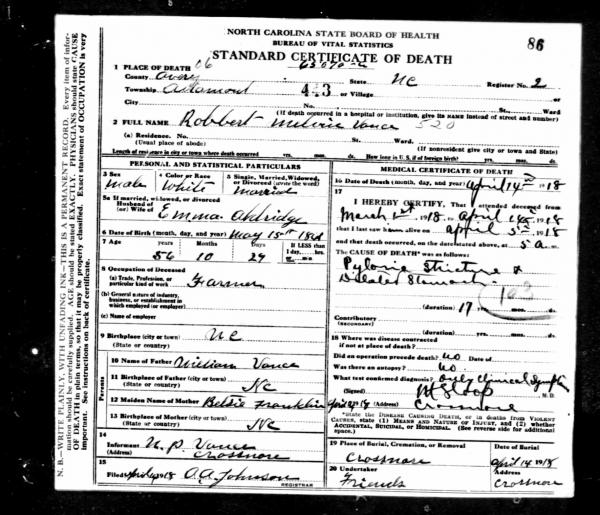 NORTH CAROLINA STATE BOARD OF HEALTH
BUREAU OF VITAL STATISTICS
STANDARD CERTIFICATE OF DEATH
86
1 PLACE OF DEATH 06
County Avery State NC Register No. 2
Township Altamont 443 or Village
City No. St. Ward
(If death occurred in a hospital or institution, give its NAME instead of street and number)
2 FULL NAME Robbert Melvin Vance 520
(a) Residence. No. St. Ward.
(Usual place of abode) (If nonresident give city or town and State)
Length of residence in city or town where death occurred yrs. mos. ds. How long in U. S., if of foreign birth? yrs. mos. ds.
PERSONAL AND STATISTICAL PARTICULARS
3 Sex 4 Color or Race 5 Single, Married, Widowed, or Divorced (write the word)
Male White Married
5a If married, widowed, or divorced
Husband of
(or) Wife of Emma Aldridge
6 Date of Birth (month, day, and year) May 15
7 Age Years Months Days If LESS than
1 day, hrs.
56 10 29
8 Occupation of Deceased
(a) Trade, Profession, or
particular kind of work Farmer
(b) General nature of industry,
business, or establishment in
which employed (or employer)
(c) Name of employer
9 Birthplace (city or town) NC
(State or country)
Parents
10 Name of Father William Vance
11 Birthplace of Father (city or town)
(State or country) NC
12 Maiden Name of Mother Betsie Franklin
13 Birthplace of Mother (city or town)
(State or country) NC
14
Informant Vance
(Address) Crossnore
15
Filed 1918 Johnson
REGISTRAR
MEDICAL CERTIFICATE OF DEATH
16 Date of Death (month, day, and year) April 14 1918
17
I HEREBY CERTIFY, That attended deceased from
March 1918 to April 14 1918
that I last saw him alive on April 5 1918
and that death occurred, on the date stated above, at 5 a m.
The CAUSE OF DEATH was as follows:
Pyloric Stricture &
Dilated Stomach
103
(duration) 17 yrs. mos. ds.
Contributory
(SECONDARY)
(duration) yrs. mos. ds.
18 Where was disease contracted
if not at place of death?
Did an operation precede death? No Date of
Was there an autopsy? No
What test confirmed diagnosis? Only Clinical Symptoms
(Signed) Sloop M. D.
1918 (Address) Crossnore
*State the DISEASE CAUSING DEATH, or in deaths from VIOLENT
CAUSES, state (1) MEANS AND NATURE OF INJURY, and (2) whether
ACCIDENTAL, SUICIDAL, or HOMICIDAL. (See reverse side for additional
space.)
19 Place of Burial, Cremation, or Removal Date of Burial
Crossnore April 14 1918
20 Undertaker Address
Friends Crossnore
N. B.—WRITE PLAINLY, WITH UNFADING INK—THIS IS A PERMANENT RECORD. Every item of information should be carefully supplied. AGE should be stated EXACTLY. PHYSICIANS should state CAUSE OF DEATH in plain terms, so that it may be properly classified. Exact statement of OCCUPATION is very important. See instructions on back of certificate.